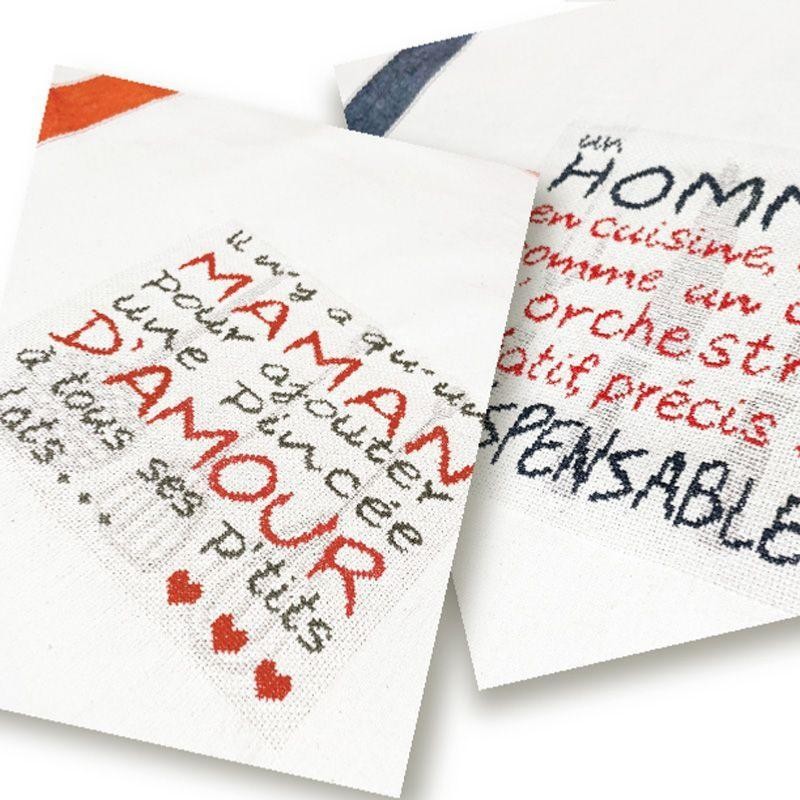 il n'y a qu'un
MAMAN
pour ajouter
une pincée
D'AMOUR
à tous ses p'tits
lats...
un
HOMM
en cuisine,
omme un
'orchestr
atif précis
SPENSABLE